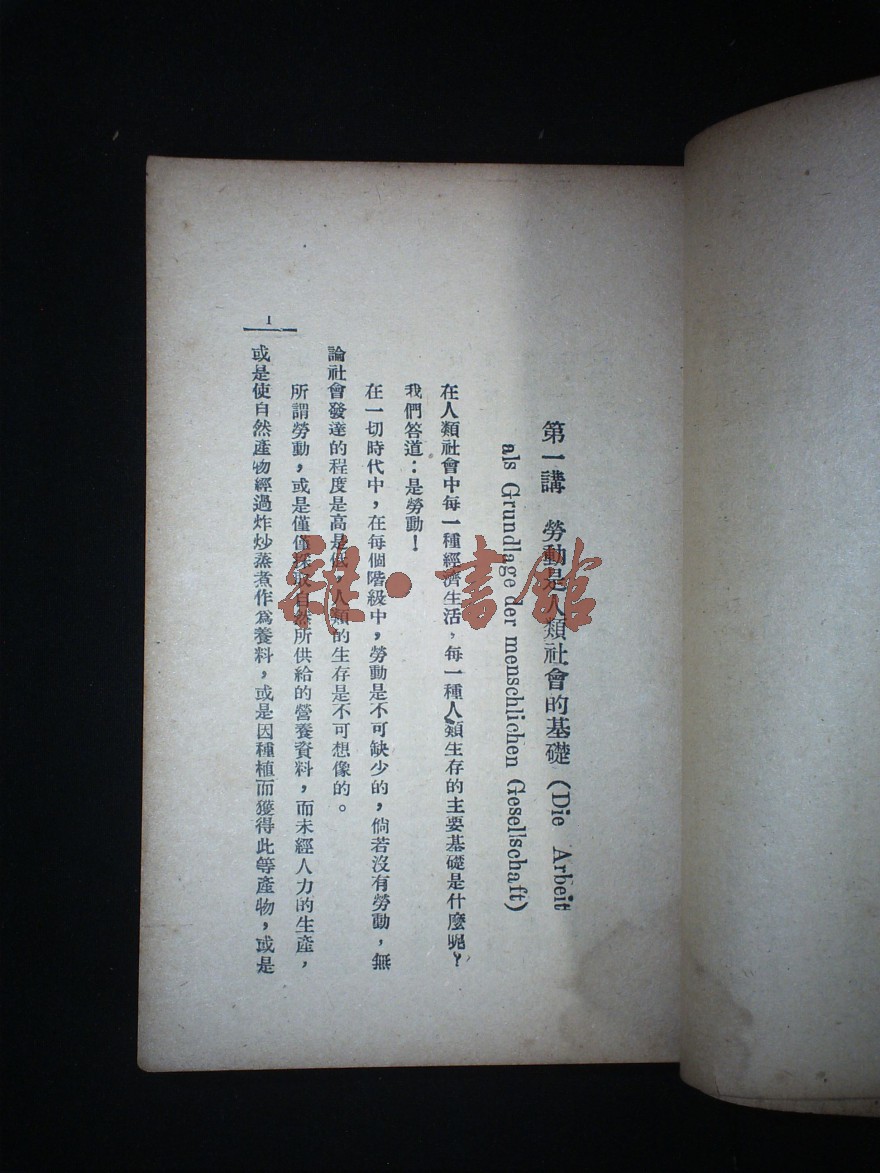 第一講　勞動是人類社會的基礎（Die Arbeit
als Grundlage der menschlichen Gesellschaft)
在人類社會中每一種經濟生活，每一種人類生存的主要基礎是什麼呢？
我們答道：是勞動！
在一切時代中，在每個階級中，勞動是不可缺少的，倘若沒有勞動，無
論社會發達的程度是高是低，人類的生存是不可想像的。
所謂勞動，或是僅僅採取自然所供給的營養資料，而未經人力的生產，
或是使自然產物經過炸炒蒸煮作爲養料，或是因種植而獲得此等產物，或是
1
雜·書館